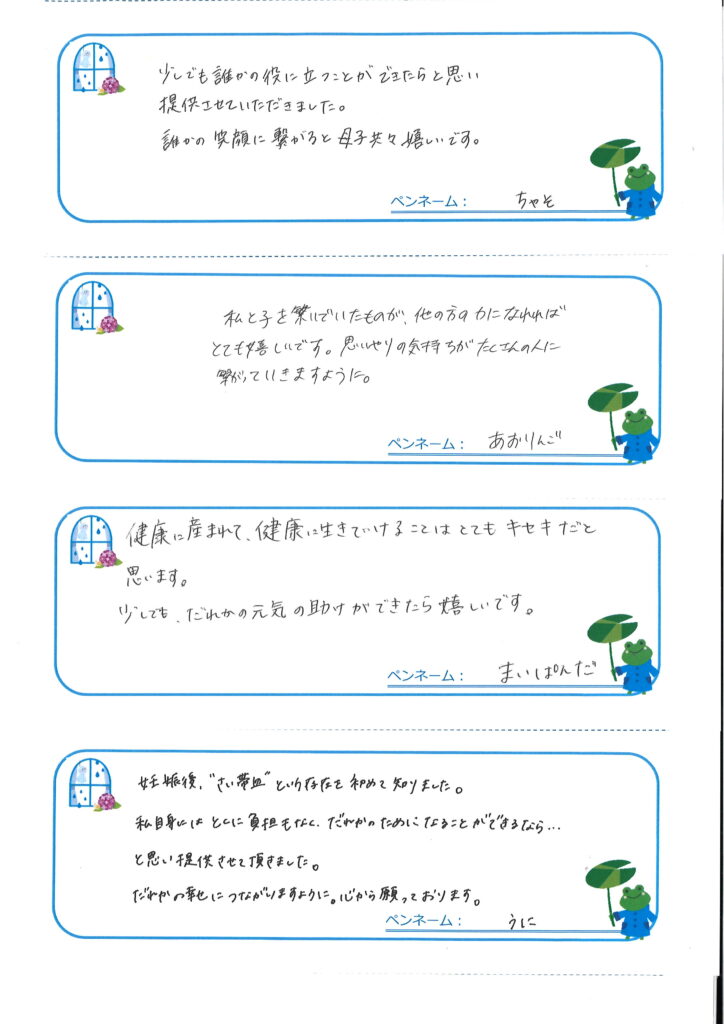 少しでも誰かの役に立つことができたらと思い
提供させていただきました。
誰かの笑顔に繋がると母子共々嬉しいです。
ペンネーム： ちゃそ
私と子を繋いでいたものが、他の方の力になれれば
とても嬉しいです。思いやりの気持ちがたくさんの人に
繋がっていきますように。
ペンネーム： あおりんご
健康に産まれて、健康に生きていけることはとてもキセキだと
思います。
少しでも、だれかの元気の助けができたら嬉しいです。
ペンネーム： まいぱんだ
妊娠後、"さい帯血"という存在を初めて知りました。
私自身にはとくに負担もなく、だれかのためになることができるなら…
と思い提供させて頂きました。
だれかの幸せにつながりますように。心から願っております。
ペンネーム： うに